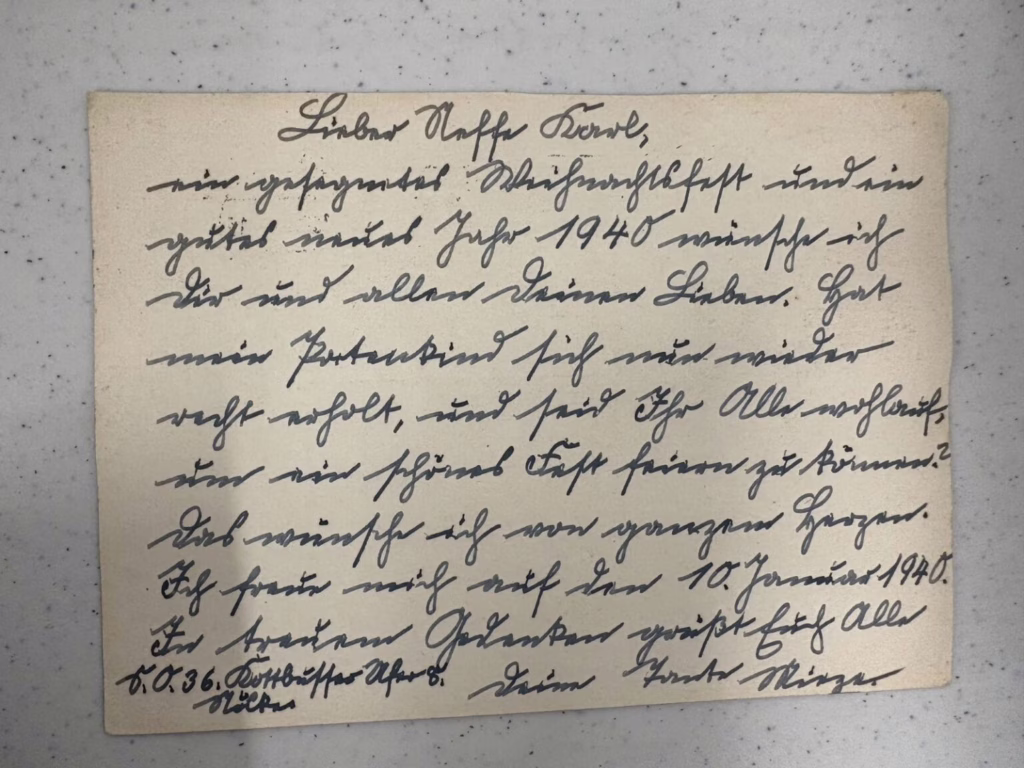 Lieber Neffe Karl,
ein gesegnetes Weihnachtsfest und ein
gutes neues Jahr 1940 wünsche ich
Dir und allen Deinen Lieben. Hat
mein Patenkind sich nun wieder
recht erholt, und seid Ihr Alle wohlauf,
um ein schönes Fest feiern zu können?
Das wünsche ich von ganzem Herzen.
Ich freue mich auf den 10. Januar 1940.
In treuem Gedenken grüßt Euch Alle
Deine Tante Mieze.
S.O.36. Kottbusser Ufer 8.